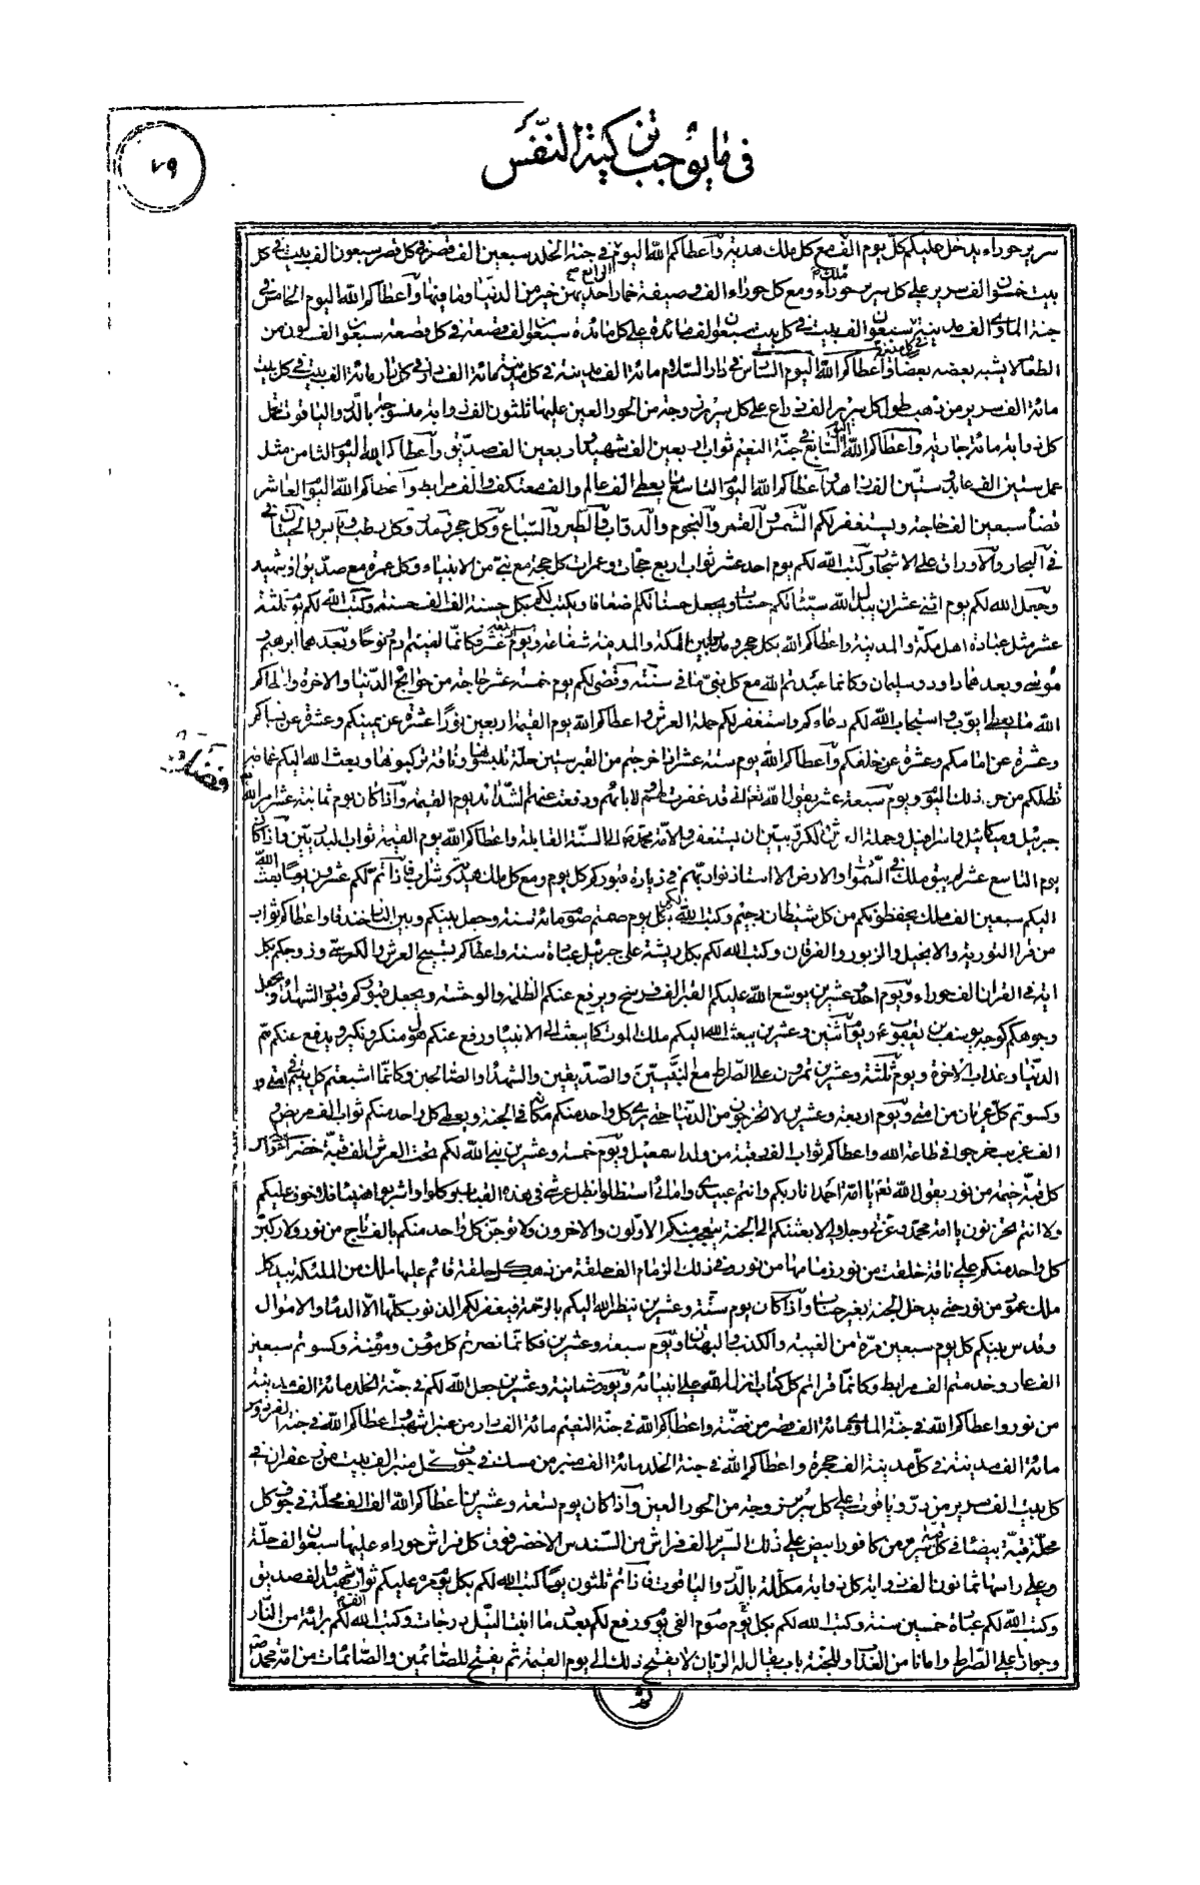 في ما يوجب تزكية النفس
٧٩
سرير حوراء يدخل عليكم كل يوم الف مع كل ملك هدية واعطاكم الله اليوم الرابع في جنة الخلد سبعين الف قصر في كل قصر سبعون الف بيت في كل
بيت خمسون الف سرير على كل سرير حوراء ومع كل حوراء الف وصيفة خمار احديهن خير من الدنيا وما فيها واعطاكم الله اليوم الخامس في
جنة الماوى الف مدينة في كل مدينة سبعون الف بيت في كل بيت سبعون الف مائدة على كل مائدة سبعون الف قصعة في كل قصعة سبعون الف لون من
الطعام لا يشبه بعضه بعضا واعطاكم الله اليوم السادس في دار السلام مائة الف مدينة في كل مدينة مائة الف دار في كل دار مائة الف بيت في كل بيت
مائة الف سرير من ذهب طول كل سرير الف ذراع على كل سرير زوجة من الحور العين عليها ثلثون الف ذوابة منسوجة بالدر والياقوت تحمل
كل ذوابة مائة جارية واعطاكم الله اليوم السابع في جنة النعيم ثواب اربعين الف شهيد واربعين الف صديق واعطاكم الله اليوم الثامن مثل
عمل ستين الف عابد وستين الف زاهد واعطاكم الله اليوم التاسع ما يعطى الف عالم والف معتكف والف مرابط واعطاكم الله اليوم العاشر
قضاء سبعين الف حاجة ويستغفر لكم الشمس والقمر والنجوم والدواب والطير والسباع وكل حجر ومدر وكل رطب ويابس والحيتان في
في البحار والاوراق على الاشجار وكتب الله لكم يوم احد عشر ثواب اربع حجات وعمرات كل حجة مع نبي من الانبياء وكل عمرة مع صديق او شهيد
وجعل الله لكم يوم اثنى عشر ان يبدل الله سيئاتكم حسنات ويجعل حسناتكم ضعافا ويكتب لكم بكل حسنة الف الف حسنة وكتب الله لكم يوم ثلثة
عشر مثل عبادة اهل مكة والمدينة واعطاكم الله بكل حجر ومدر ما بين مكة والمدينة شفاعة ويوم اربعة عشر فكانما لقيتم ادم ونوحا وبعدهما ابرهيم و
موسى وبعدهما داود وسليمان وكانما عبدتم الله مع كل نبي مائتى سنة وقضى لكم يوم خمسة عشر حاجة من حوائج الدنيا والاخرة واعطاكم
الله ما يعطى ايوب واستجاب الله لكم دعاءكم واستغفر لكم حملة العرش واعطاكم الله يوم القيمة اربعين نورا عشرة عن يمينكم وعشرة عن يساركم
وعشرة عن امامكم وعشرة عن خلفكم واعطاكم الله يوم ستة عشر اذا خرجتم من القبر ستين حلة تلبسونها وناقة تركبونها وبعث الله اليكم غمامة
تظلكم من حر ذلك اليوم ويوم سبعة عشر يقول الله تعالى انى قد غفرت لهم ولابائهم ودفعت عنهم الشدائد يوم القيمة واذا كان يوم ثمانية عشر امر الله
جبرئيل وميكائيل واسرافيل وحملة العرش والكروبيين ان يستغفروا لامة محمد ص الى السنة القابلة واعطاكم الله يوم القيمة ثواب البدريين واذا كان
يوم التاسع عشر لم يبق ملك في السموات والارض الا استاذنوا ربهم في زيارة قبوركم كل يوم ومع كل ملك هدية وشراب فاذا تم لكم عشرون يوما بعث الله
اليكم سبعين الف ملك يحفظونكم من كل شيطان رجيم وكتب الله لكم بكل يوم صمتم صوم مائة سنة وجعل بينكم وبين النار خندقا واعطاكم ثواب
من قرا التورية والانجيل والزبور والفرقان وكتب الله لكم بكل ريشة على جبرئيل عبادة سنة واعطاكم تسبيح العرش والكرسي وزوجكم بكل
اية في القران الف حوراء ويوم احد وعشرين يوسع الله عليكم القبر الف فرسخ ويرفع عنكم الظلمة والوحشة ويجعل قبوركم كقبور الشهداء ويجعل
وجوهكم كوجه يوسف بن يعقوب ع ويوم اثنين وعشرين يبعث الله اليكم ملك الموت كما يبعث الى الانبياء ورفع عنكم هول منكر ونكير ويدفع عنكم هم
الدنيا وعذاب الاخرة ويوم ثلثة وعشرين تمرون على الصراط مع النبيين والصديقين والشهداء والصالحين وكانما اشبعتم كل يتيم في امتي و
وكسوتم كل عريان من امتي ويوم اربعة وعشرين لا تخرجون من الدنيا حتى يرى كل واحد منكم مكانه في الجنة ويعطى كل واحد منكم ثواب الف مريض و
الف غريب خرجوا في طاعة الله واعطاكم ثواب الف رقبة من ولد اسمعيل ويوم خمسة وعشرين بنى الله لكم تحت العرش الف قبة خضراء على راس
كل قبة خيمة من نور يقول الله تعالى يا امة احمد انا ربكم وانتم عبيدي وامائي استظلوا بظل عرشي في هذه القباب وكلوا واشربوا هنيئا فلا خوف عليكم
ولا انتم تحزنون يا امة محمد وعزتي وجلالي لابعثنكم الى الجنة يتعجب منكم الاولون والاخرون ولاتوجن كل واحد منكم بالف تاج من نور ولاركبن
كل واحد منكم على ناقة خلقت من نور زمامها من نور في ذلك الزمام الف حلقة من ذهب في كل حلقة قائم عليها ملك من الملئكة بيد كل
ملك عمود من نور حتى يدخل الجنة بغير حساب واذا كان يوم ستة وعشرين ينظر الله اليكم بالرحمة فيغفر لكم الذنوب كلها الا الدماء والاموال
وقدس بيتكم كل يوم سبعين مرة من الغيبة والكذب والبهتان ويوم سبعة وعشرين فكانما نصرتم كل مؤمن ومؤمنة وكسوتم سبعين
الف عار وخدمتم الف مرابط وكانما قراتم كل كتاب انزل الله على انبيائه ويوم ثمانية وعشرين جعل الله لكم في جنة الخلد مائة الف مدينة
من نور واعطاكم الله في جنة الماوى مائة الف قصر من فضة واعطاكم الله في جنة النعيم مائة الف دار من عنبر اشهب واعطاكم الله في جنة الفردوس
مائة الف مدينة في كل مدينة الف حجرة واعطاكم الله في جنة الخلد مائة الف منبر من مسك في جوف كل منبر الف بيت من زعفران في
كل بيت الف سرير من در وياقوت على كل سرير زوجة من الحور العين واذا كان يوم تسعة وعشرين اعطاكم الله الف الف محلة في جوف كل
محلة قبة بيضاء في كل قبة سرير من كافور ابيض على ذلك السرير الف فراش من السندس الاخضر فوق كل فراش حوراء عليها سبعون الف حلة
وعلى راسها ثمانون الف ذوابة كل ذوابة مكللة بالدر والياقوت فاذا تم ثلثون يوما كتب الله لكم بكل يوم مر عليكم ثواب الف شهيد والف صديق
وكتب الله لكم عبادة خمسين سنة وكتب الله لكم بكل يوم صوم الفي يوم ورفع لكم بعدد ما انبت النيل درجات وكتب الله لكم براءة من النار
وجوازا على الصراط وامانا من العذاب وللجنة باب يقال له الريان لا يفتح ذلك الى يوم القيمة ثم يفتح للصائمين والصائمات من امة محمد ص